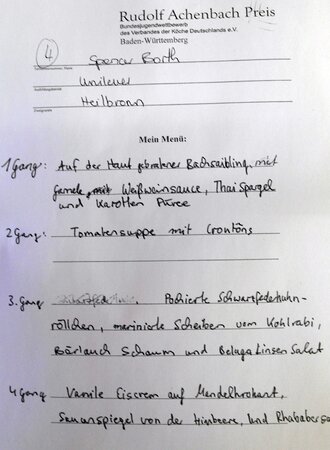 Rudolf Achenbach Preis
Bundesjugendwettbewerb
des Verbandes der Köche Deutschlands e.V.
Baden-Württemberg
4
Spencer Barth
Unilever
Heilbronn
Mein Menü:
1 Gang: Auf der Haut gebratener Bachsaibling mit
Garnele, mit Weißweinsauce, Thai Spargel
und Karotten Püree
2 Gang: Tomatensuppe mit Croutôns
3. Gang Pochierte Schwarzfederhuhn-
röllchen, marinierte Scheiben vom Kohlrabi,
Bärlauch Schaum und Beluga Linsen Salat
4 Gang Vanille Eiscrem auf Mandelkrokant,
von der Himbeere, und Rhabarber